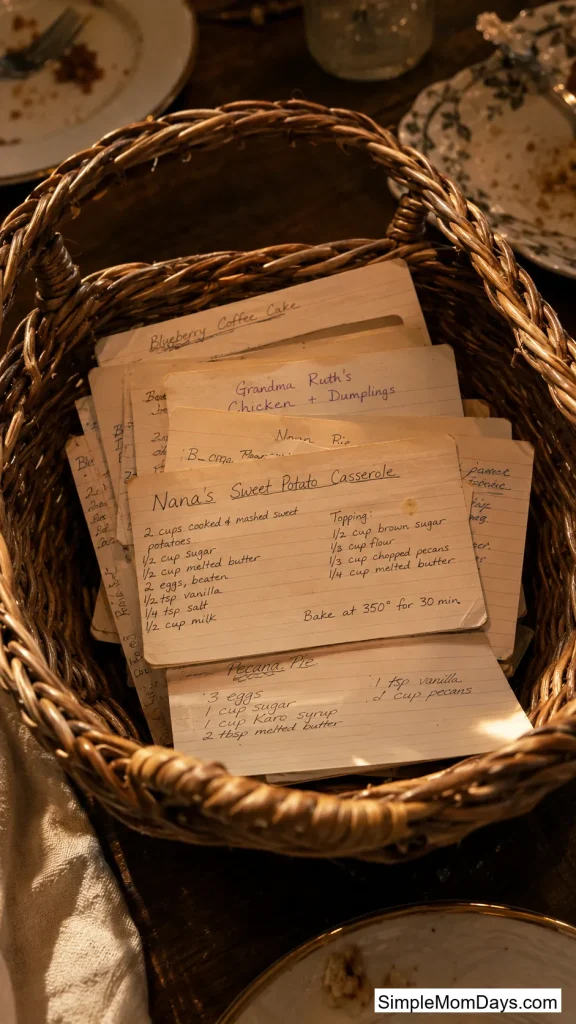 Blueberry Coffee Cake
Grandma Ruth's
Chicken + Dumplings
Pie
Nana's Sweet Potato Casserole
2 cups cooked & mashed sweet
potatoes
1/2 cup sugar
1/2 cup melted butter
2 eggs, beaten
1/2 tsp vanilla
1/4 tsp salt
1/2 cup milk
Topping:
1/2 cup brown sugar
1/3 cup flour
1/3 cup chopped pecans
1/4 cup melted butter
Bake at 350° for 30 min.
Pecana Pie
3 eggs
1 cup sugar
1 cup Karo syrup
2 tbsp melted butter
1 tsp vanilla
cup pecans
SimpleMomDays.com